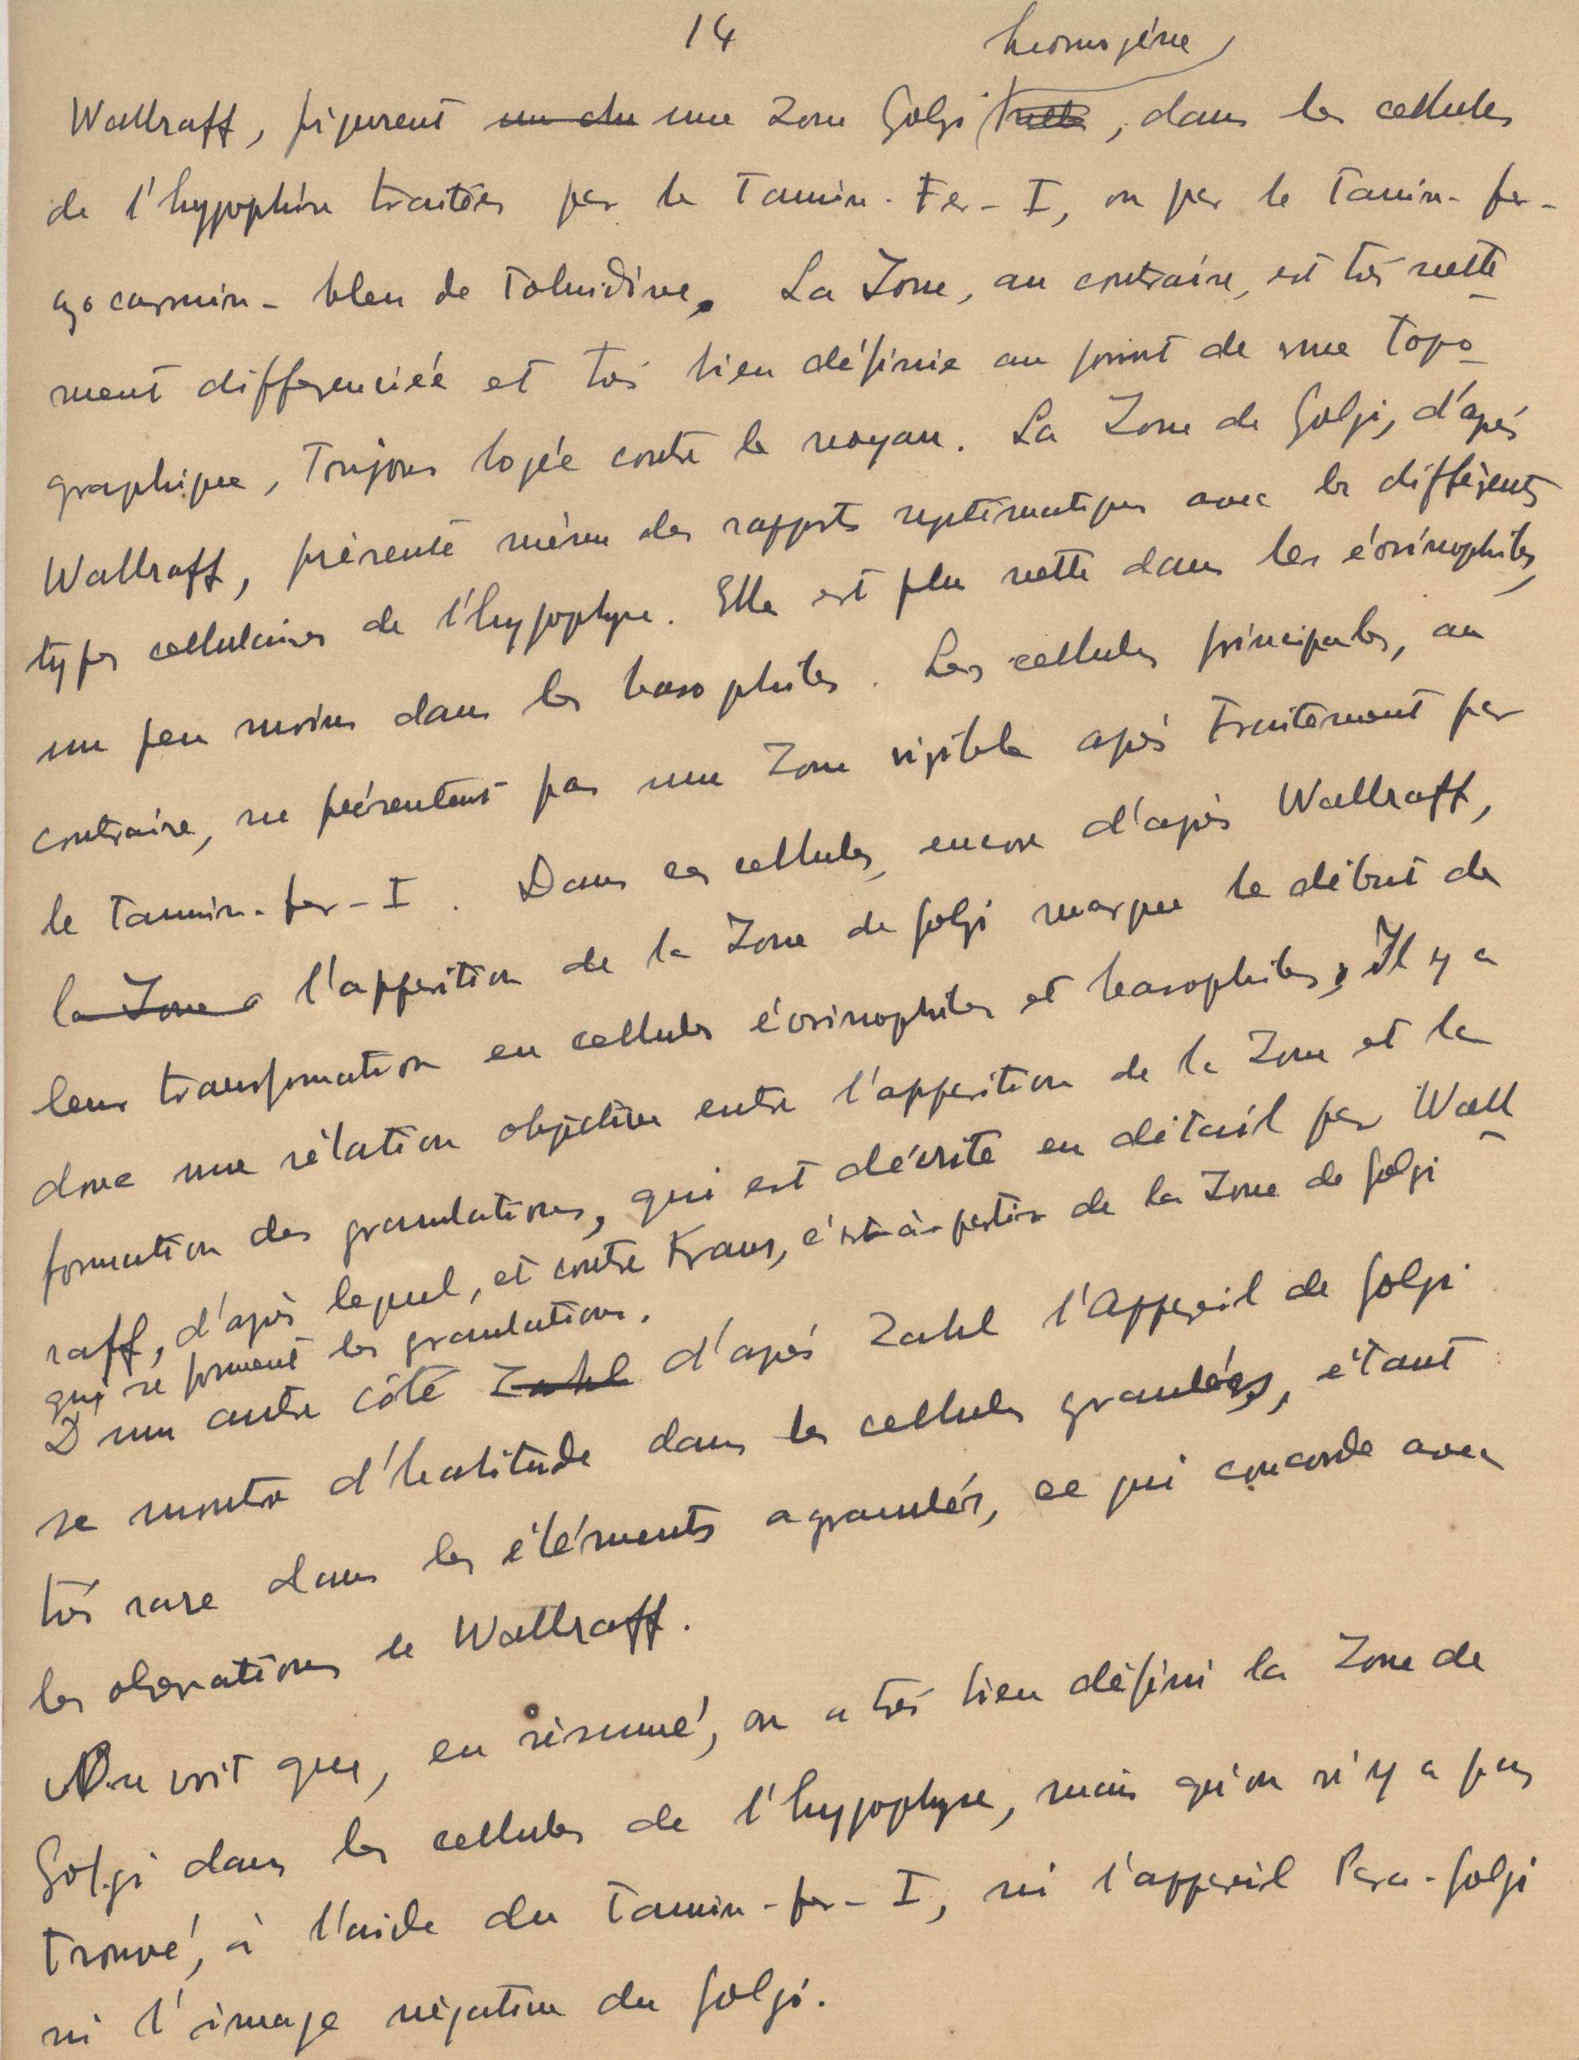 14
homogène
Wallraff, figurent un du une Zone Golgi nette, dans les cellules
de l'hypophise traitées par le Tannin-Fer-I, ou par le Tannin-fer-
azocarmin-bleu de Toluidine. La Zone, au contraire, est très nette-
ment differenciée et très bien définie au point de vue topo-
graphique, Toujours logée contre le noyau. La Zone de Golgi, d'après
Wallraff, présente même des rapports systématiques avec les différents
types cellulaires de l'hypophyse. Elle est plus nette dans les éosinophiles,
un peu moins dans les basophiles. Les cellules principales, au
contraire, ne présentent pas une Zone visible après traitement par
le Tannin-fer-I. Dans ces cellules, encore d'après Wallraff,
la Zone l'apparition de la Zone de Golgi marque le début de
leur transformation en cellules éosinophiles et basophiles, Il y a
donc une rélation objective entre l'apparition de la Zone et la
formation des granulations, qui est décrite en détail par Wall-
raff, d'après lequel, et contre Kraus, c'est à partir de la Zone de Golgi
qui se forment les granulations.
D'un autre côté Zahl d'après Zahl l'Appareil de Golgi
se montre d'habitude dans les cellules granulées, étant
très rare dans les éléments agranulés, ce qui concorde avec
les obserations de Wallraff.
On voit que, en résumé, on a très bien défini la Zone de
Golgi dans les cellules de l'hypophyse, mais qu'on n'y a pas
trouvé, à l'aide du Tannin-fer-I, ni l'appareil Para-Golgi
ni l'image négative du Golgi.